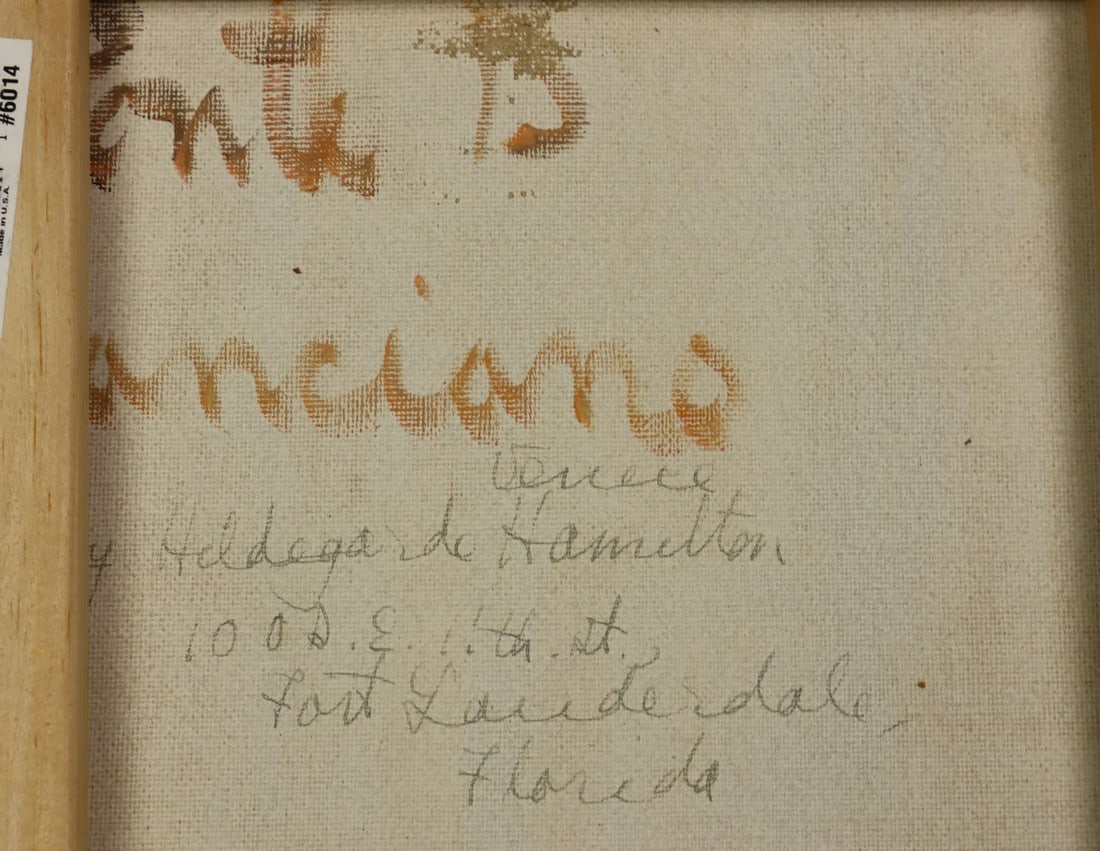 #6014
Made in U.S.A.
onte B
anciano
Venice
y Hildegarde Hamilton
100 S.E. 11th. St.,
Fort Lauderdale,
Florida